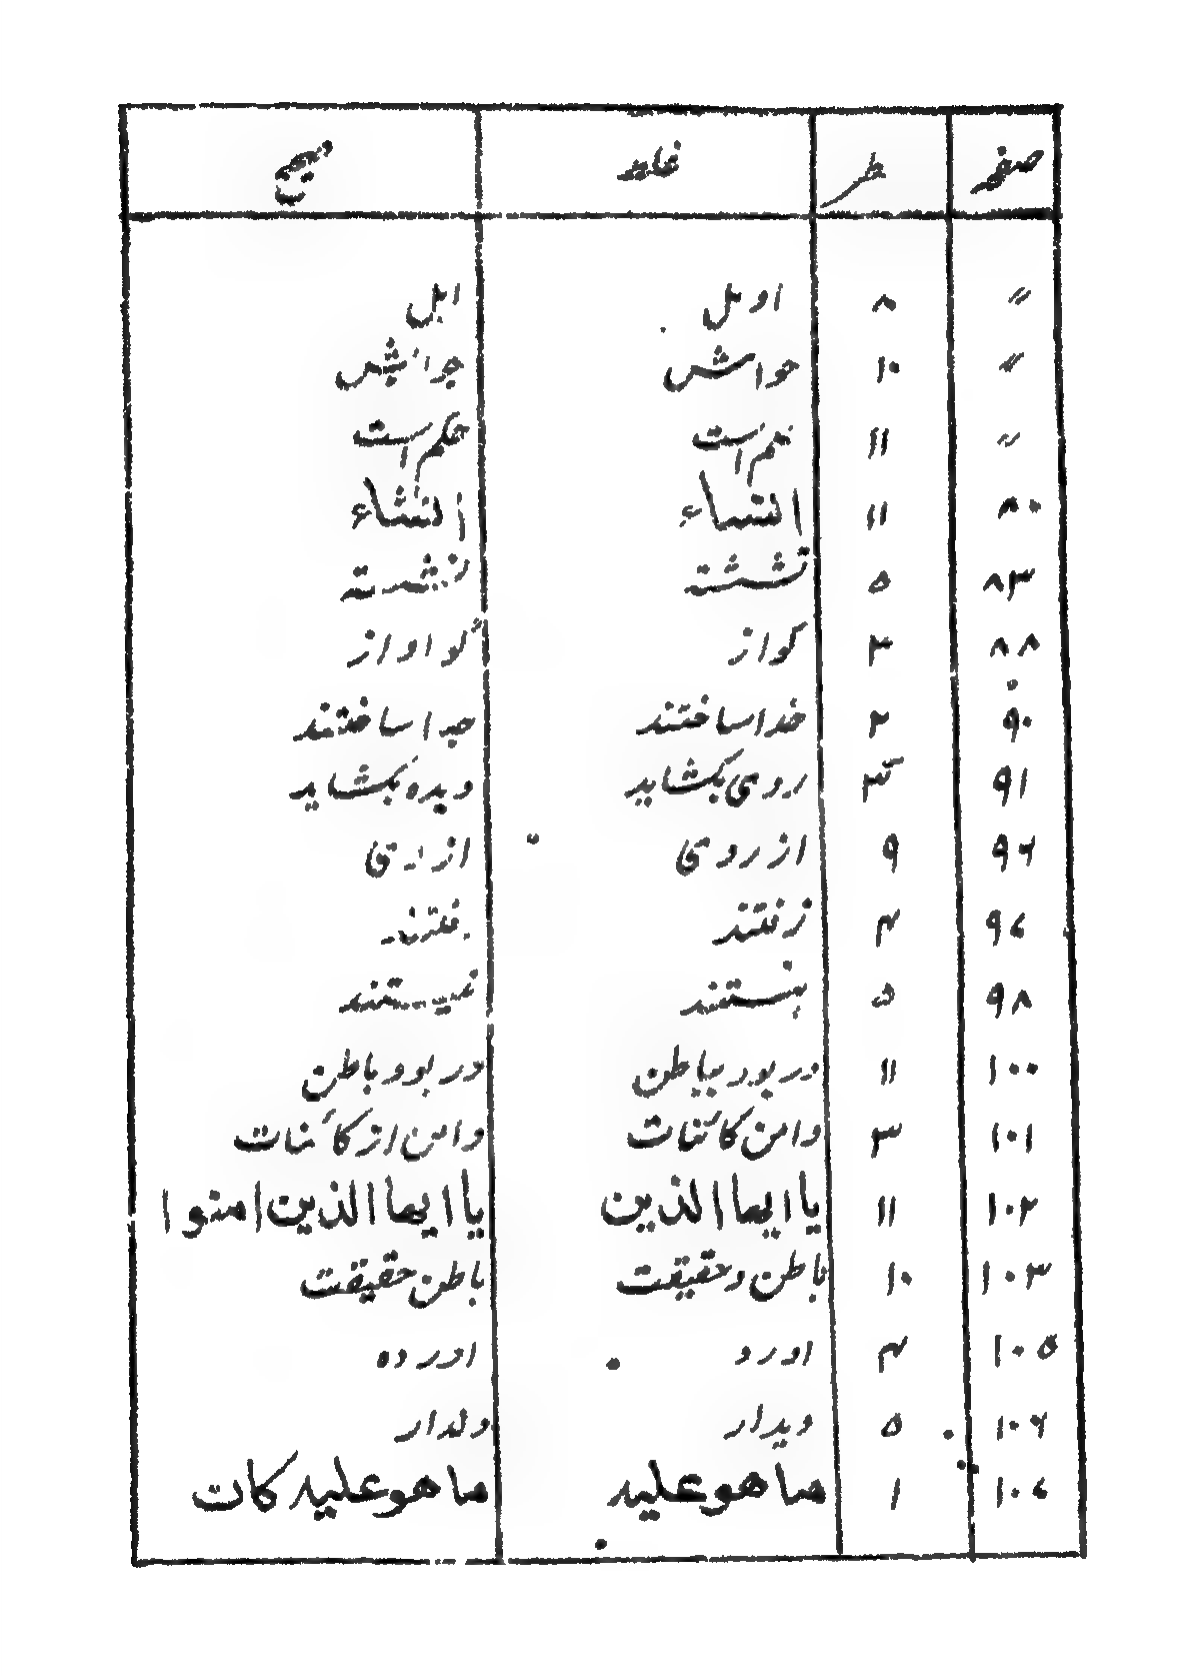 صفحہ سطر غلط صحیح
〃 ۸ اوہل اہل
〃 ۱۰ حواش
〃 ۱۱ حکم است
۸۰ ۱۱ النساء النشاء
۸۳ ۵
۸۸ ۳ کواز گو اواز
۹۰ ۲ خدا ساختند جدا ساختند
۹۱ ۳ روی بکشاید دیده بکشاید
۹۶ ۹ از روی از ری
۹۷ ۴ زفتند
۹۸ ۵ نیستند
۱۰۰ ۱۱ در بود بباطن در بود و باطن
۱۰۱ ۳ وامن کائنات وامن از کائنات
۱۰۲ ۱۱ یا ایها الذین یا ایها الذین امنوا
۱۰۳ ۱۰ باطن و حقیقت باطن حقیقت
۱۰۵ ۴ اورد اورده
۱۰۶ ۵ دیدار دلدار
۱۰۷ ۱ ما هو علیه ما هو علیه کان